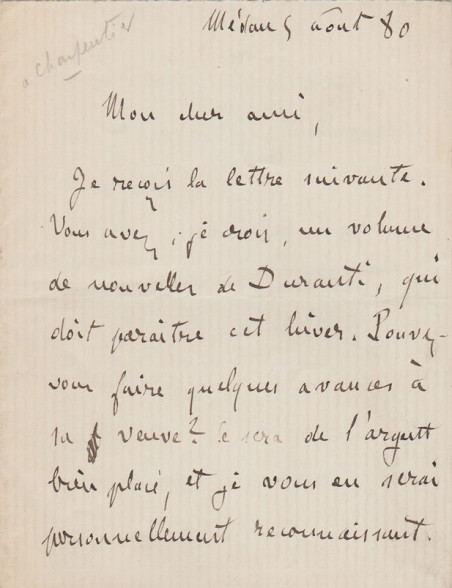 Médan 5 août 80
a charpentier
Mon cher ami,
Je reçois la lettre suivante.
Vous avez, je crois, un volume
de nouvelles de Duranti, qui
doit paraître cet hiver. Pouvez-
vous faire quelques avances à
sa veuve? Ce sera de l'argent
bien placé, et je vous en serai
personnellement reconnaissant.